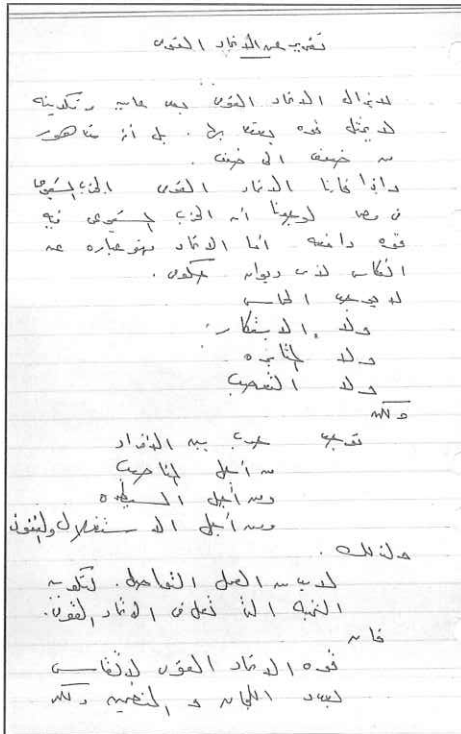 تقرير عن الاتحاد القومى
لا يزال الاتحاد القومى بعد عامين وتكوينه
لا يمثل قوه يعتد بها. بل انه متدهور
من ضعيف الى ضعيف.
واذا قارنا الاتحاد القومى بالحزب الشيوعى
فى مصر لوجدنا أن الحزب الشيوعى فيه
قوه دافعه أما الاتحاد فهو عباره عن
انعكاس لأى ديوان حكومى.
لا يوجد الحماس
ولا الابتكار
ولا المثابره
ولا التعصب
ولكن
توجد حرب بين الأفراد
من أجل المناصب
ومن أجل السيطره
ومن أجل الاستغلال والنفوذ
ولذلك.
لابد من العمل المتواصل. لتكوين
النخبه التى تعمل فى الاتحاد القومى.
فان
قوه الاتحاد القومى لا تقاس
بعدد اللجان و المنضمين ولكن